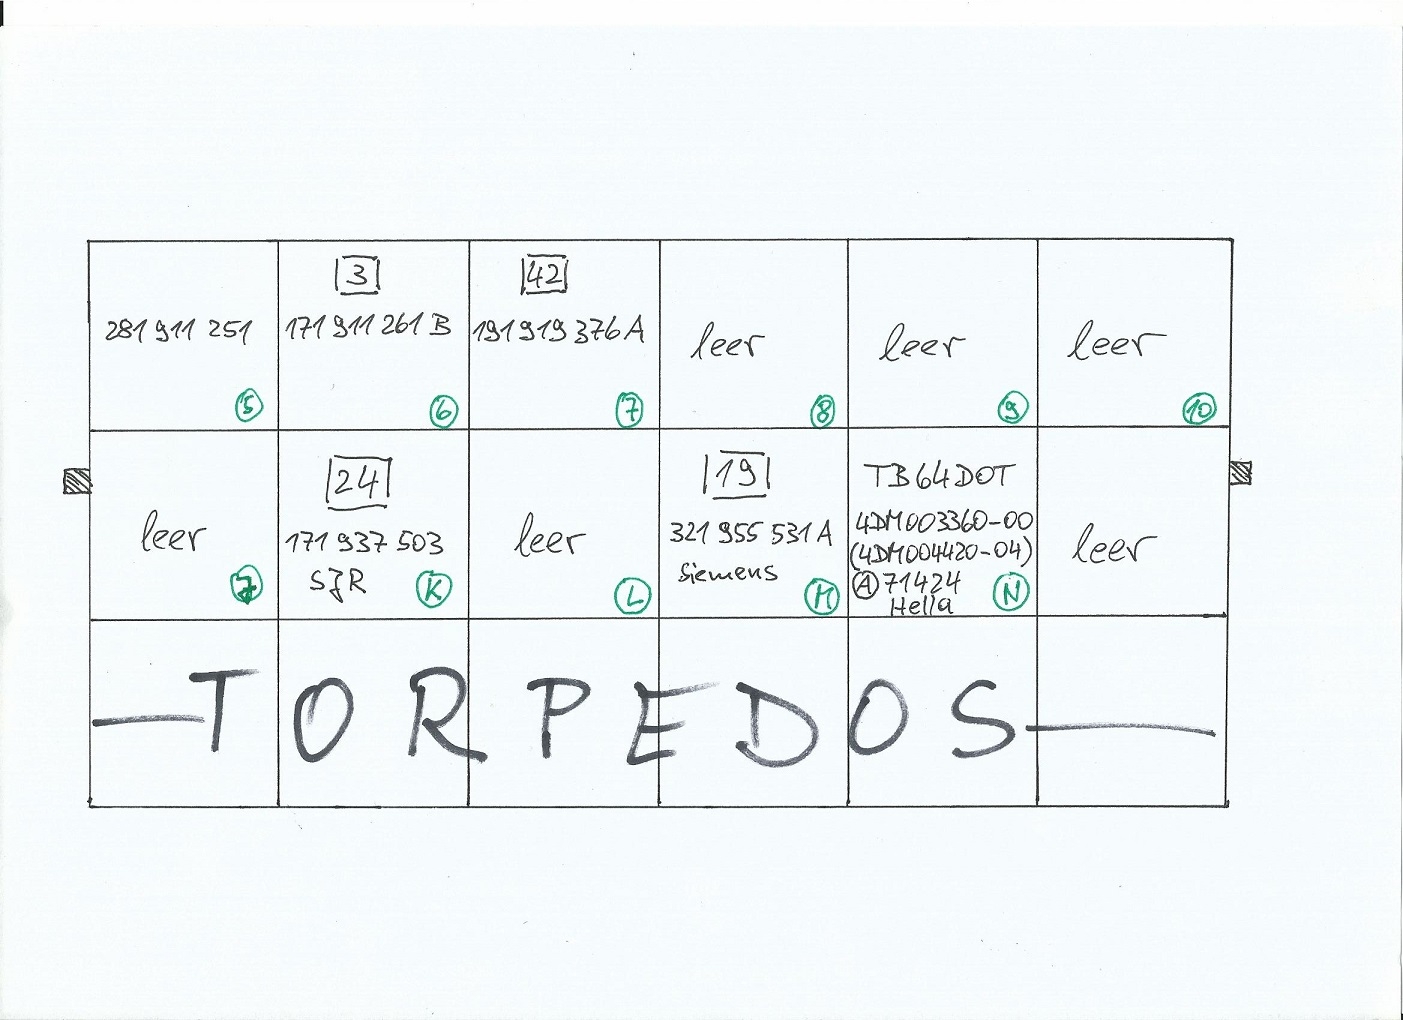 3
281 911 251
5
171 911 261 B
6
42
191 919 376 A
7
leer
8
leer
9
leer
10
leer
J
24
171 937 503
SJR
K
leer
L
19
321 955 531 A
Siemens
M
TB64DOT
4DM003360-00
(4DM004420-04)
A 71424
Hella
N
leer
TORPEDOS